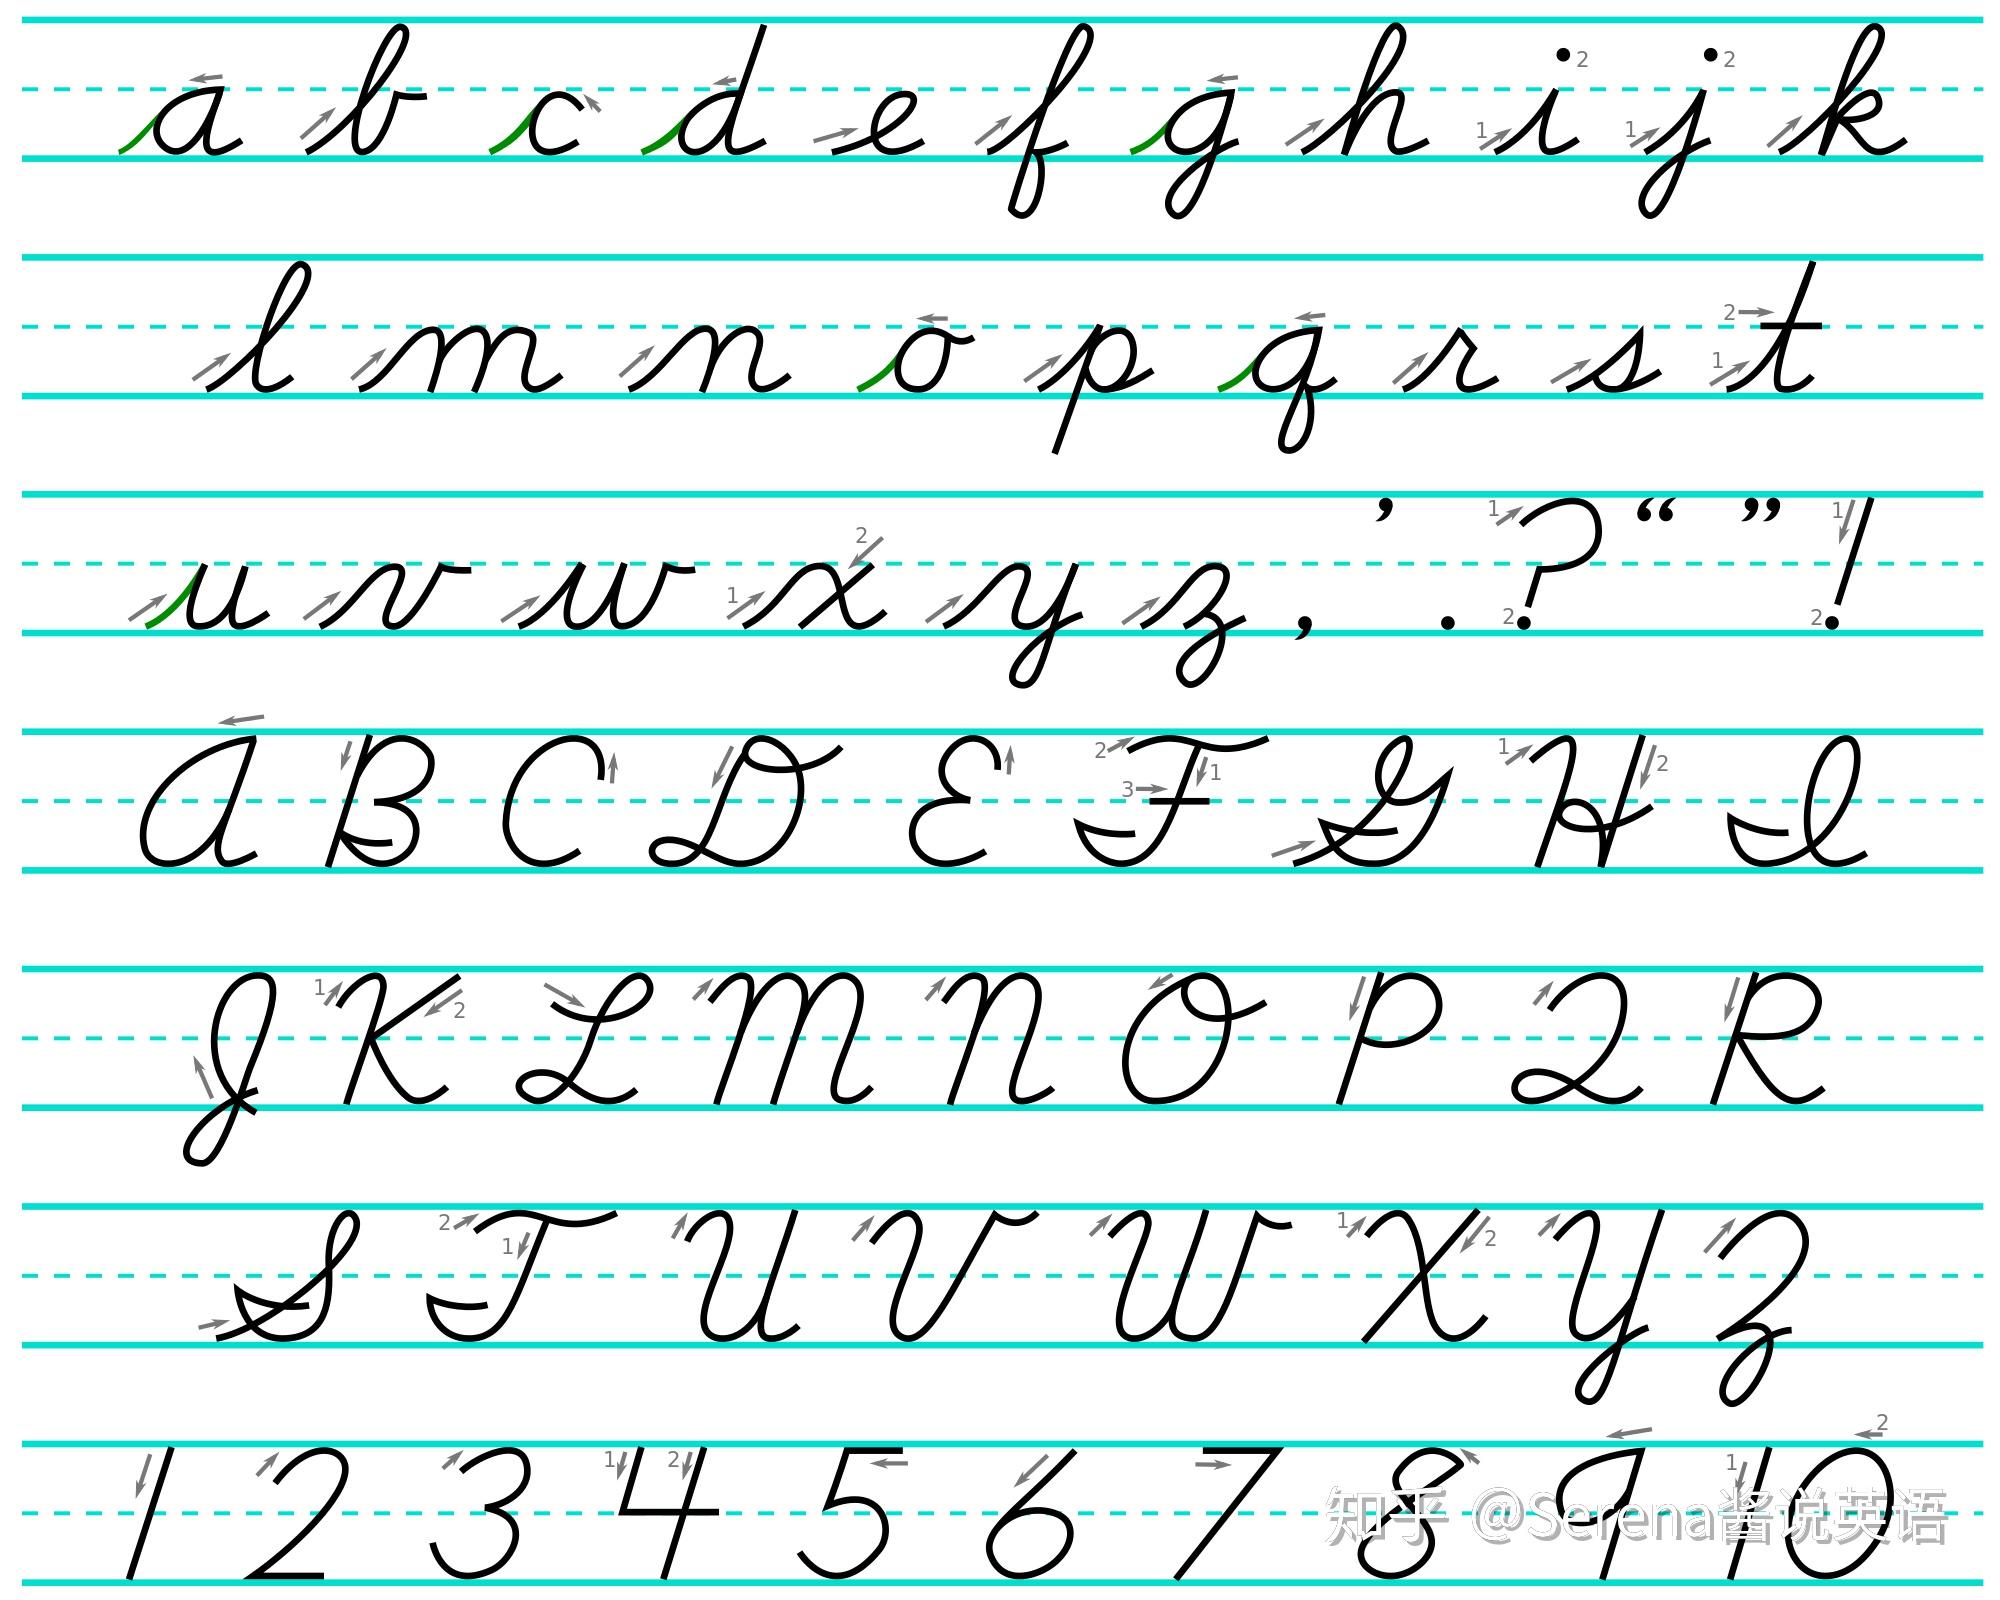 a b c d e f g h i j k
l m n o p q r s t
u v w x y z , . ’ ? “ ” !
A B C D E F G H I
J K L M N O P Q R
S T U V W X Y Z
1 2 3 4 5 6 7 8 9 10
知乎 @Serena酱说英语